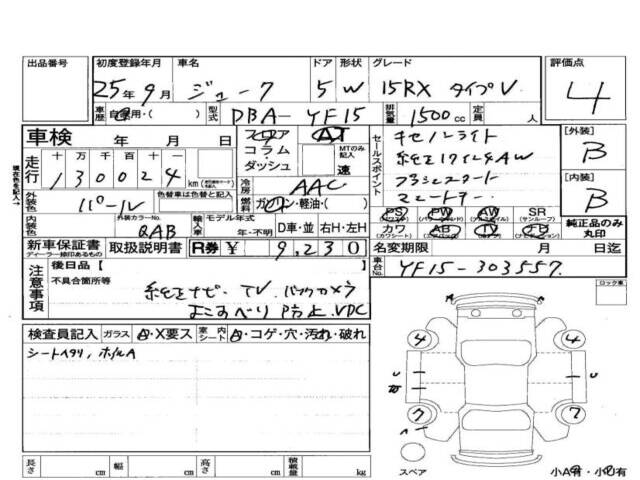 出品番号 初度登録年月 車名 ドア 形状 グレード 評価点
25年9月 ジューク 5 W 15RX タイプV 4
車歴 自家用・( ) 型式 DBA-YF15 排気量 1500cc 定員 人
車検 年 月 日 フロア AT
コラム・ MTのみ記入
ダッシュ 速
走行 十 万 千 百 十
130024 km
冷房 AAC
セールスポイント キセノンライト
純正17インチAW
プッシュスタート
スマートキー
[外装] B
[内装] B
純正品のみ丸印
外装色 パール 色替車は色替と記入 色替元色 燃料 ガソリン・軽油・( )
PS PW AW SR
(パワステ) (パワーウィンド) (アルミホイル) (サンルーフ)
カワ AB TV
(カワシート) (エアバック) (テレビ) (ナビゲーション)
内装色 外装カラーNo. QAB 輸入車 モデル年式 年・不明 D車・並 右H・左H
新車保証書 取扱説明書 R券 ¥ 9,230 名変期限 月 日迄
ディーラー捺印あるもの
車台No. YF15-303557
注意事項 後日品【 】
不具合箇所等
純正ナビ TV バックカメラ
よこすべり防止 VDC
ロック車
検査員記入 ガラス A・X要ス 室内 シート A・コゲ・穴・汚れ・破れ
シートヘタリ, ホイルA
4 4
U U
7 7
スペア 小A有・小U有
長さ cm 幅 cm 高さ cm 積載量 kg